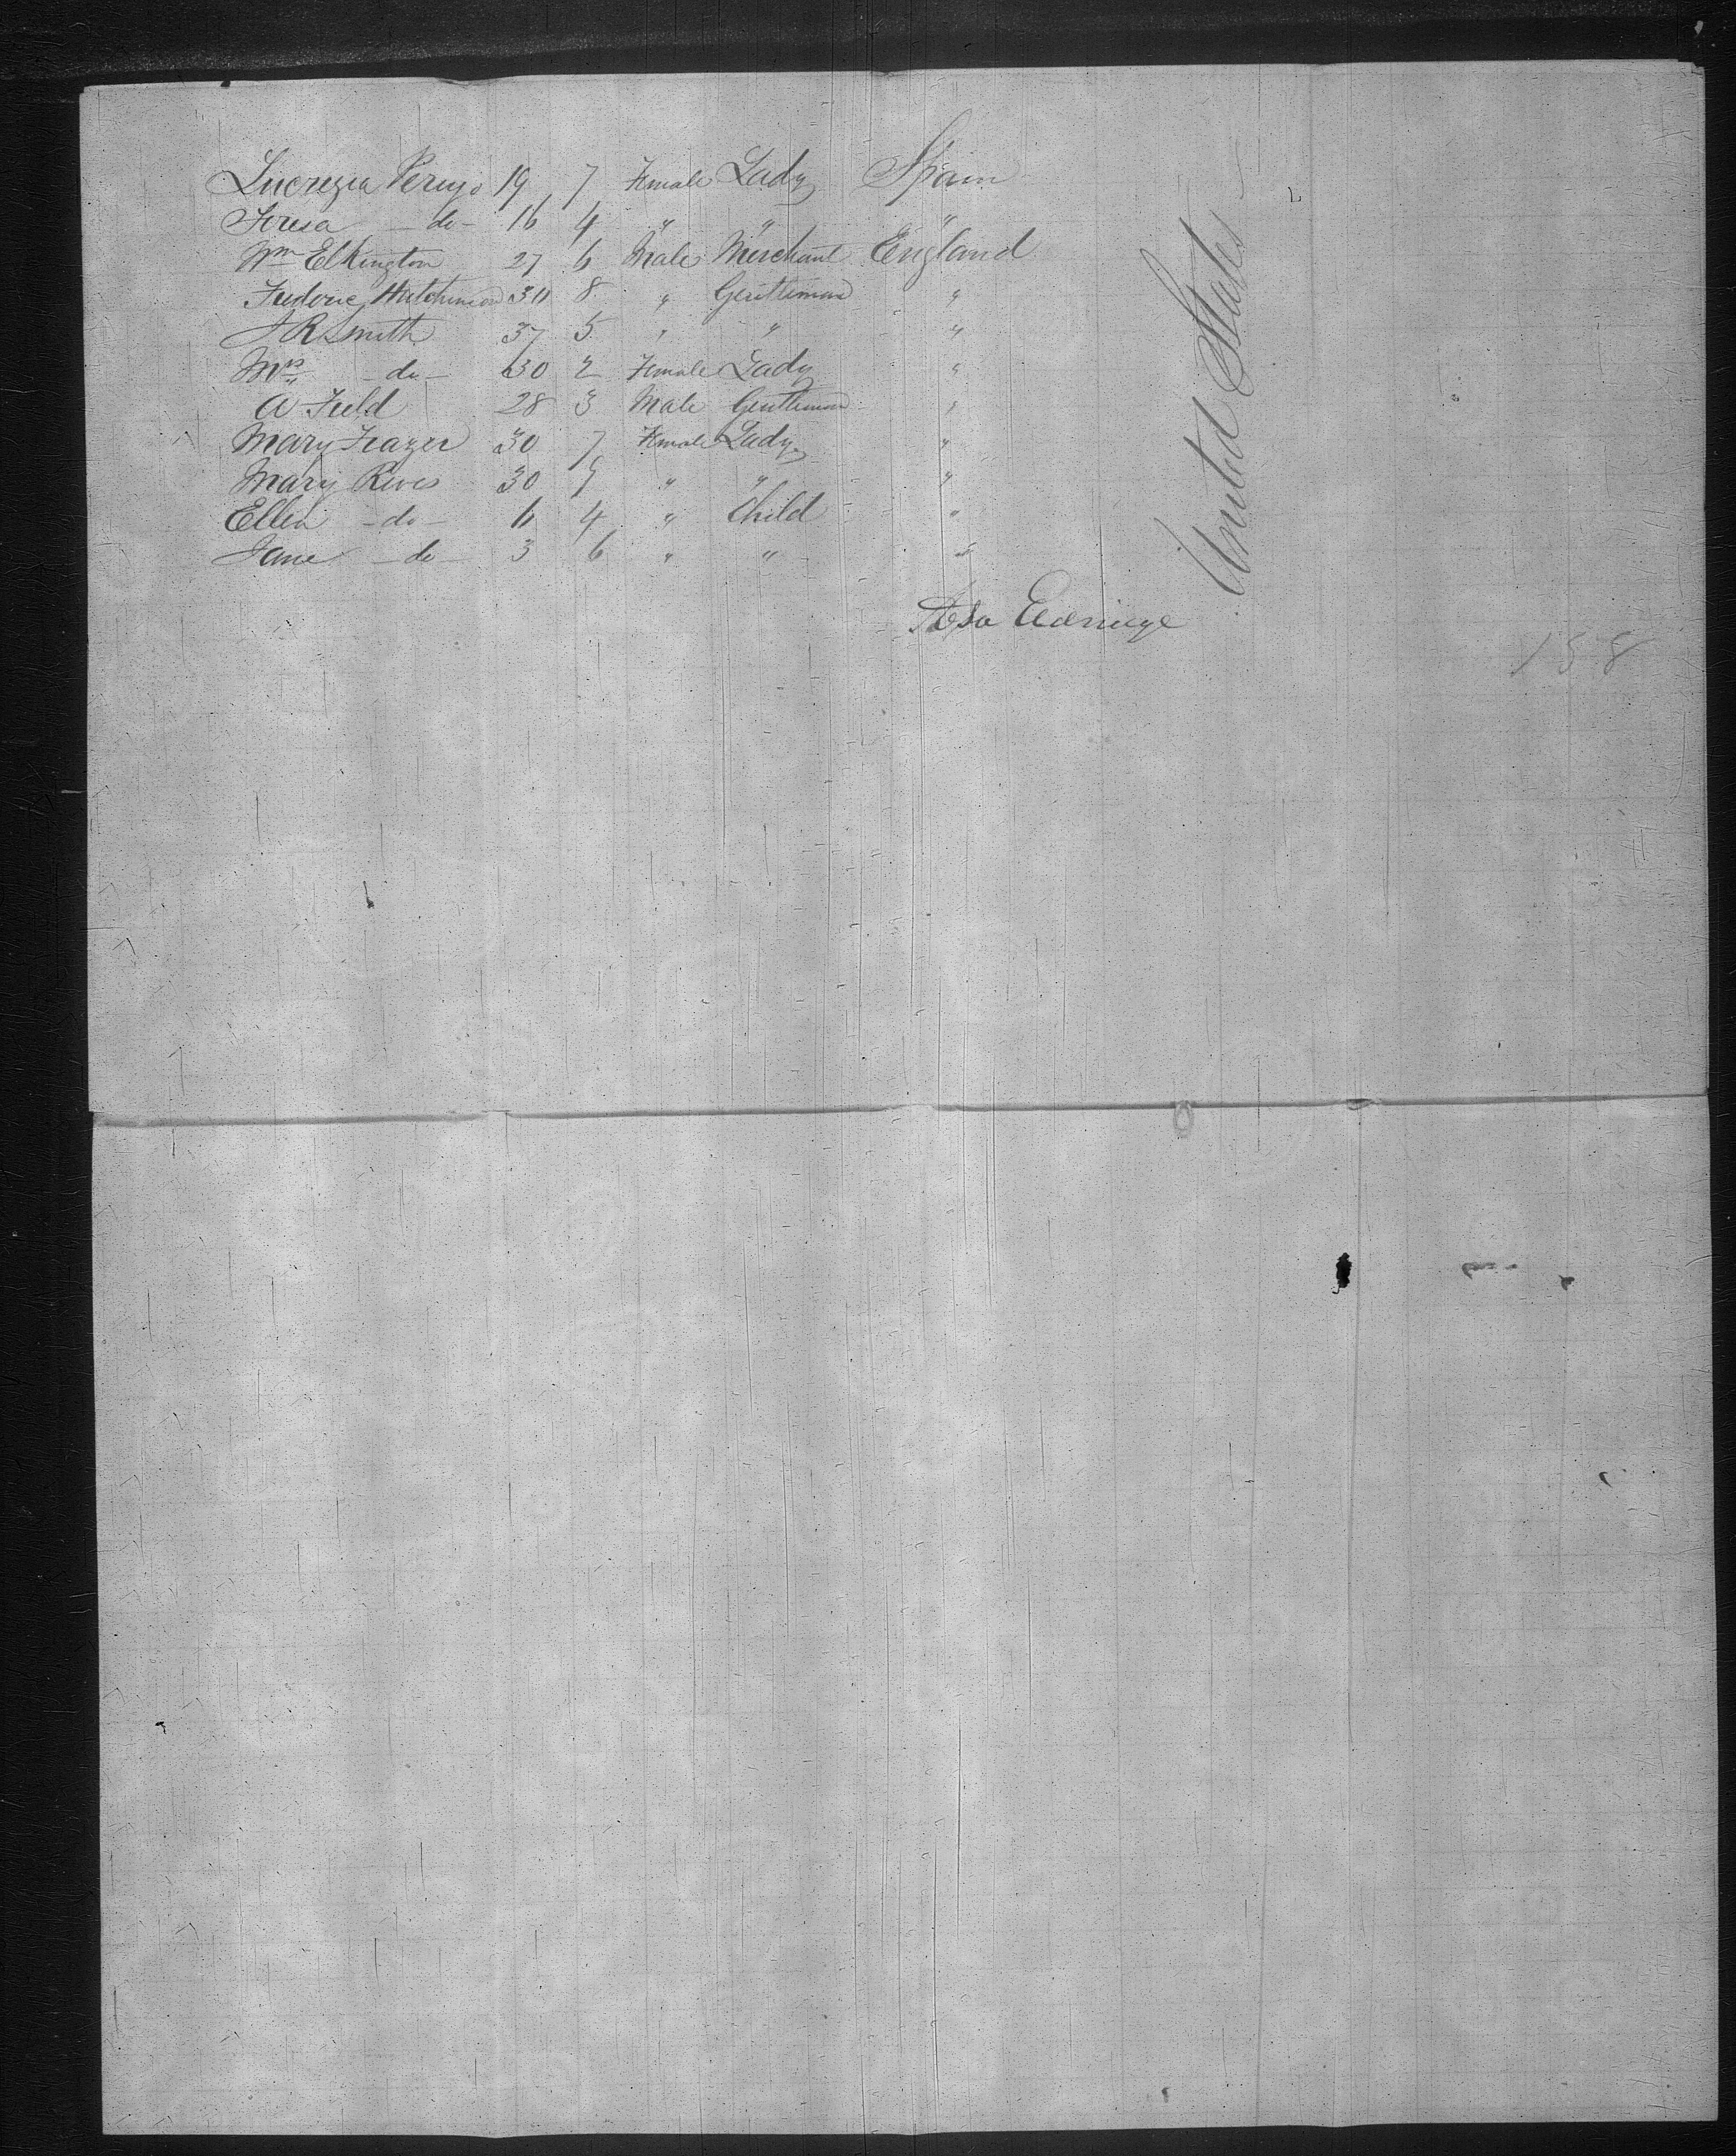 Lucrezia Perujo 19 7 Female Lady Spain
Teresa - do - 16 4 " " "
Wm Elkington 27 6 Male Merchant England
Frederic Hutchinson 30 8 " Gentleman "
J R Smith 37 5 " " "
Mrs - do - 30 2 Female Lady "
A Field 28 3 Male Gentleman "
Mary Frazer 30 7 Female Lady "
Mary Rives 30 9 " " "
Ellen - do - 6 4 " Child "
Jane - do - 3 6 " " "
United States
Asa Eldridge
158